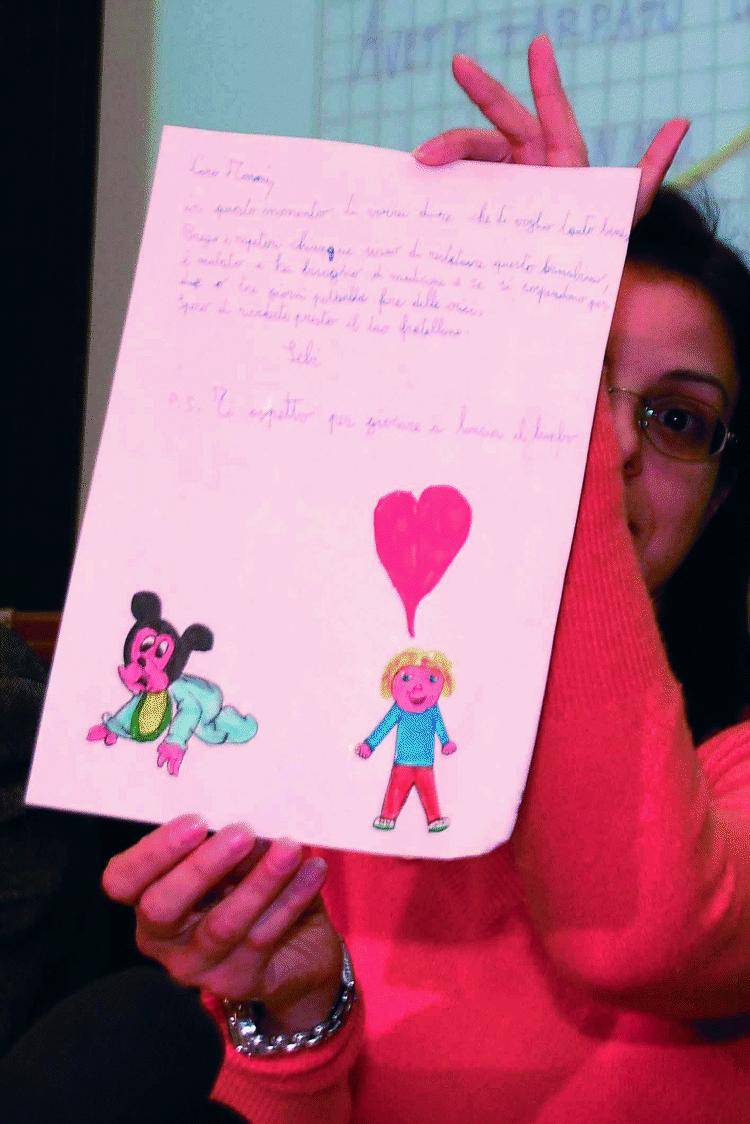 AVETE TARPATO
Caro
in questo momento ti vorrei dire che ti voglio tanto bene.
Prego e ripeto: chiunque di restituire questo bambino,
è malato e ha bisogno di medicine e se si sospendono per
due o tre giorni potrebbe fare delle crisi.
Spero di rivederti presto il tuo fratellino.
Sebi
P.S. Ti aspetto per giocare a